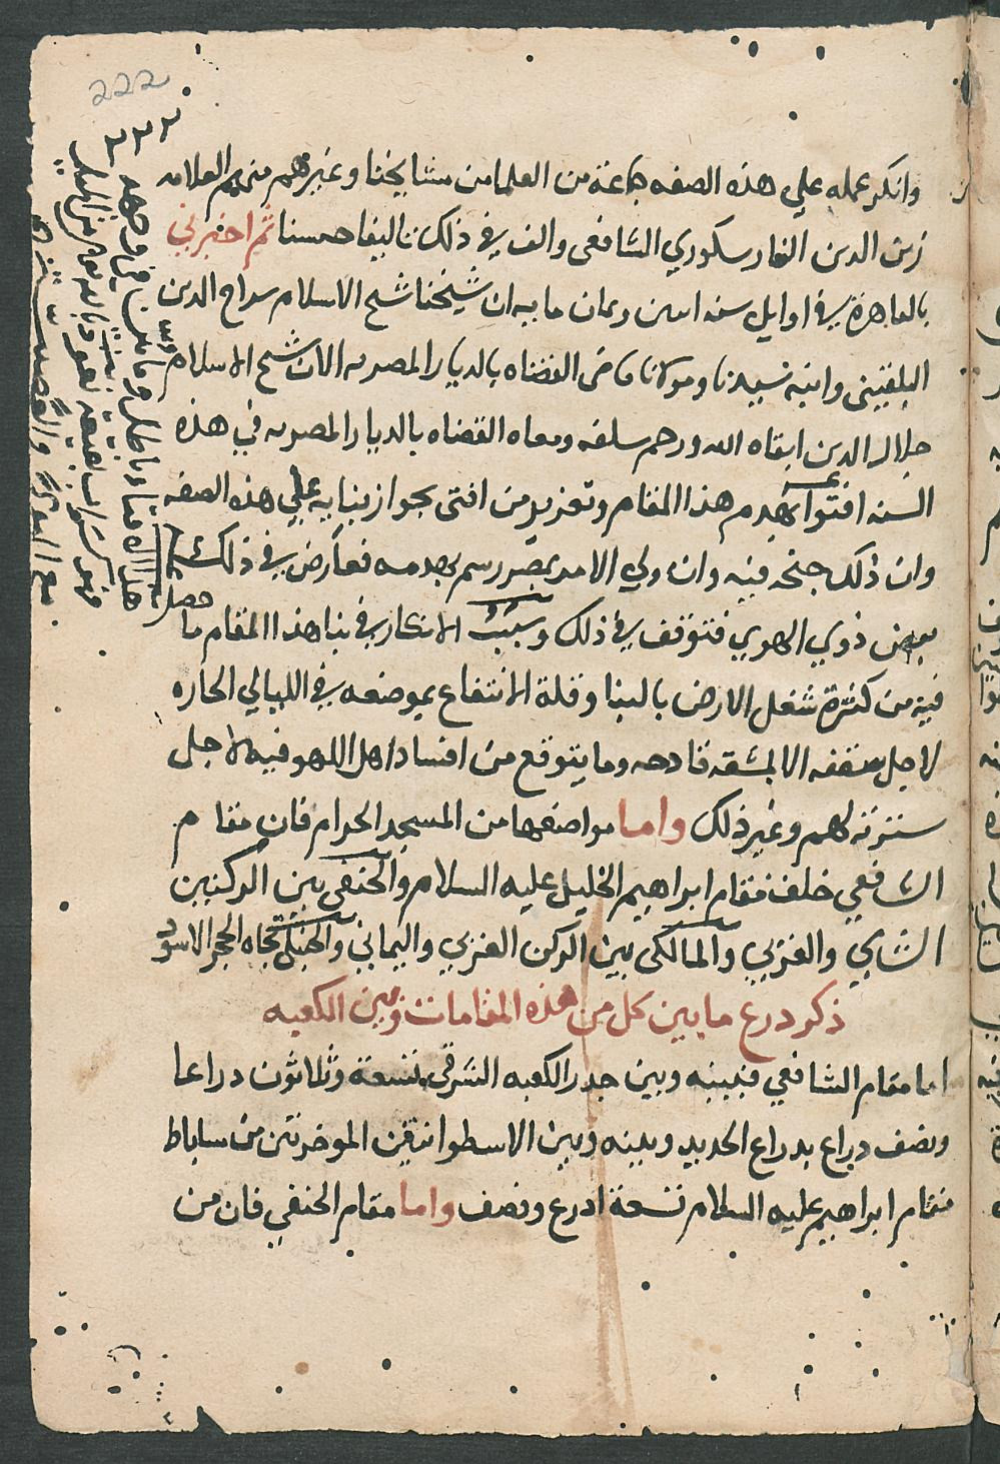 222
٢٢٢
وانكر عمله علي هذه الصفه جماعة من العلما من مشايخنا وغيرهم منهم العلامه
زين الدين الفارسكوري الشافعى والف في ذلك تاليفا حسنا ثم اخبرني
بالقاهرة في اوايل سنه اثنين وثمان مايه ان شيخنا شيخ الاسلام سراج الدين
البلقينى وابنه سيدنا ومولانا قاضى القضاه بالديار المصريه الان شيخ الاسلام
جلال الدين ابقاه الله ورحم سلفه وقضاه القضاه بالديار المصريه في هذه
السنه افتوا بهدم هذا المقام وتعزير من افتى بجواز بنايه على هذه الصفه
وان ذلك جنحه فيه وان ولي الامر بمصر رسم بهدمه فعارض في ذلك
بعض ذوي الهوي فتوقف في ذلك وسبب الانكار في بنا هذا المقام ما
حصل
فيه من كثرة شغل الارض بالبنا وقلة الانتفاع بموضعه في الليالي الحاره
لاجل سقفه الا بمشقه فادحه وما يتوقع من افساد اهل اللهو فيه لاجل
سترته لهم وغير ذلك واما مواضعها من المسجد الحرام فان مقام
الشافعي خلف مقام ابراهيم الخليل عليه السلام والحنفى بين الركنين
الشامي والغربي والمالكى بين الركن الغربي واليماني والحنبلى تجاه الحجر الاسود
ذكر درع مابين كل من هذه المقامات وبين الكعبه
اما مقام الشافعي فبينه وبين جدر الكعبه الشرقى تسعة وثلاثون دراعا
ونصف دراع بدراع الحديد وبينه وبين الاسطوانتين الموخرتين من ساباط
مقام ابراهيم عليه السلام تسعة ادرع ونصف واما مقام الحنفي فان من